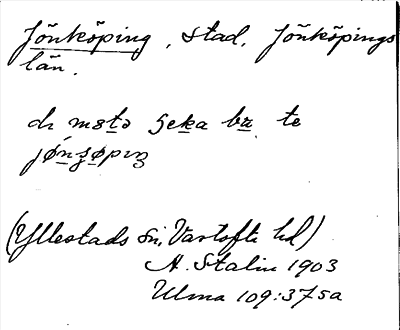 Jönköping, stad, Jönköpings
län.
di mstə ʒeka bu te
jønʒøpiŋ
(Yllestads sn, Vartofta hd)
A. Stalin 1903
Ulma 109:375a